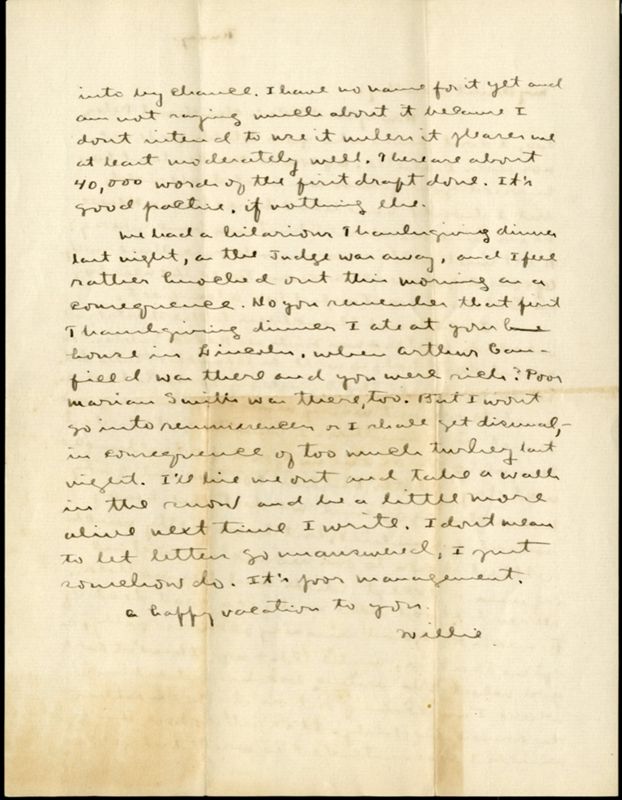 into by chance. I have no name for it yet and
am not saying much about it because I
dont intend to use it unless it pleases me
at least moderately well. There are about
40,000 words of the first draft done. It's
good practice, if nothing else.
We had a hilarious Thanksgiving dinner
last night, as the Judge was away, and I feel
rather knocked out this morning as a
consequence. Do you remember that first
Thanksgiving dinner I ate at your
house in Lincoln, when Arthur Can-
field was there and you were sick? Poor
Marian Smith was there, too. But I wont
go into reminiscences or I shall get dismal,-
in consequence of too much turkey last
night. I'll hie me out and take a walk
in the snow and be a little more
alive next time I write. I dont mean
to let letters go unanswered, I just
somehow do. It's poor management.
a happy vacation to you.
Willie